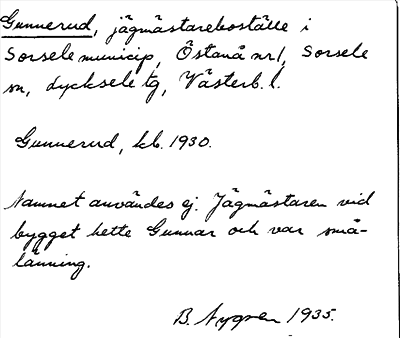 Gunnerud, jägmästareboställe i
Sorsele municip, Östanå nr 1, Sorsele
sn, Lycksele tg, Västerb. l.
Gunnerud, kb. 1930.
Namnet användes ej. Jägmästaren vid
bygget hette Gunnar och var små-
länning.
B. Nygren 1935.